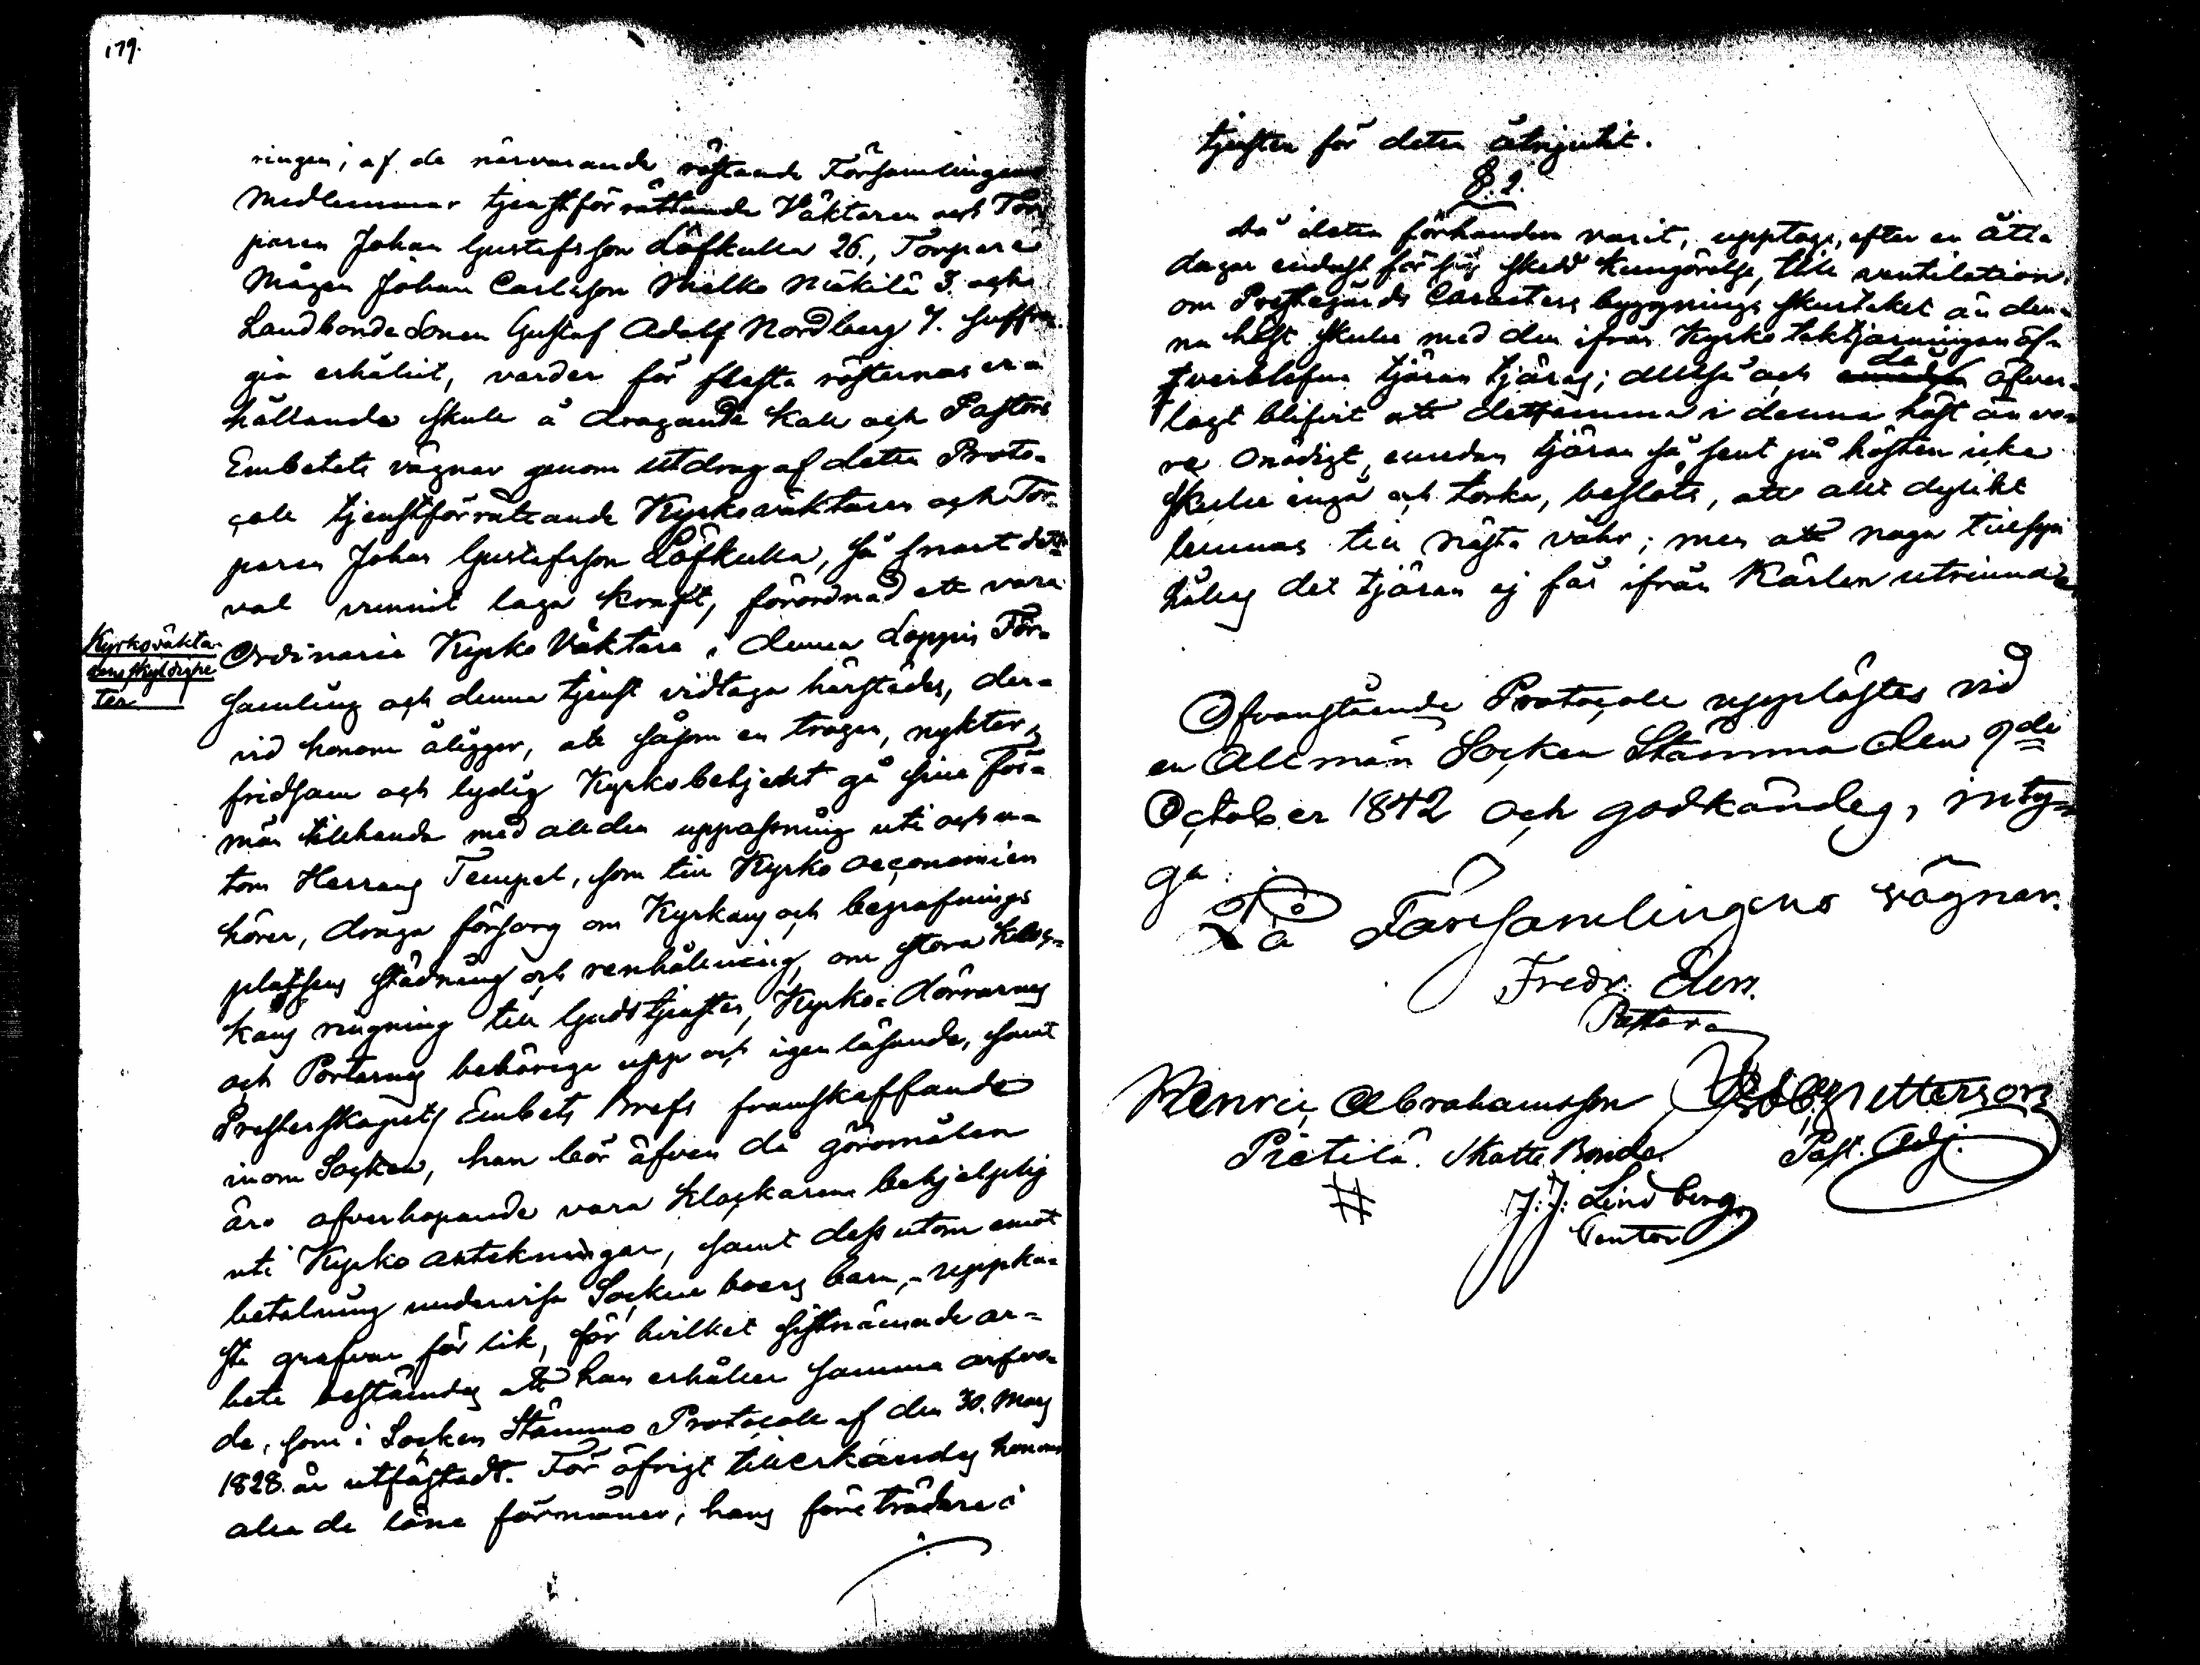 179.
ringen; af de närvarande röstande Församlingens
Medlemmar tjenstförrättande Väktaren och Tor-
paren Johan Gustafsson Löfkulla 26., Torpare
Mågen Johan Carlsson Mielko Näkilä 3. och
Landbonde Sonen Gustaf Adolf Nordberg 7. suffra
gia erhålit, varder för flesta rösternas er=
hållande skull å dragande kall och Pastors
Embetets vägnar genom utdrag af detta Proto=
coll tjenstförrättande Kyrkoväktaren och Tor-
paren Johan Gustafsson Löfkulla, så snart detta
val vunnit laga kraft, förordnad att vara
Kyrkoväkta-
rens skyldighe
ter
Ordinarie Kyrko Väktare i denna Loppis För=
samling och denna tjenst vidtaga härstädes, der=
vid honom åligger, att såsom en trogen, nykter,
fridsam och lydig Kyrkobetjent gå sine För=
män tillhanda med all den uppassning uti och u=
tom Herrans Tempel, som till Kyrko oeconomien
hörer, draga försorg om Kyrkans och begrafnings
platsens städning och renhållning, om stora kloc=
kans ringning till Gudstjenster, Kyrko=dörrarnes
och Portarnes behöriga upp och igen låsande, samt
Presterskapets Embets Brefs framskaffande
inom Socken, han bör äfven då göromålen
äro öfverhopande vara Klockaren behjelplig
uti Kyrko antekningar, samt dess utom emot
betalning undervisa Socken boers barn, uppka=
sta grafvar för lik, för hvilket sistnämnde ar=
bete bestämdes att han erhåller samma arfvo=
de, som i Socken Stämmo Protocoll af den 30. Mars
1828. är utfästadt. För öfrigt tillerkändes honom
alla de löne förmåner, hans företrädare i
tjensten för detta åtnjutit.
§. 2.
då detta förhanden varit, upptogs, efter en åtta
dagar endast förut skedd kungörelse, till ventilation
om Prestegårds Caracters byggnings skurtaket än den=
na höst skulle med den ifrån Kyrko taktjärningen öf=
verblefne tjäran tjäras; alltså och då öfver=
lagt blifvit att detsamma i denna höst än vo=
re onödigt, emedan tjäran så sent på hösten icke
skulle ingå och torka, beslöts, att allt dylikt
lemnas till nästa vår; men att noga tillsyn
hålles det tjäran ej får ifrån Kärlen utrinna
Ofvanstående Protocoll upplästes vid
en Allmän Socken Stämma den 9de
October 1842 och godkändes, inty=
ga:
På Församlingens vägnar.
Fredr: Elers.
Pastor
Henric Abrahamsson
Petterson
Pietilä. Skatte Bonde.
Past. Adj.
J: J: Lindberg
Cantor